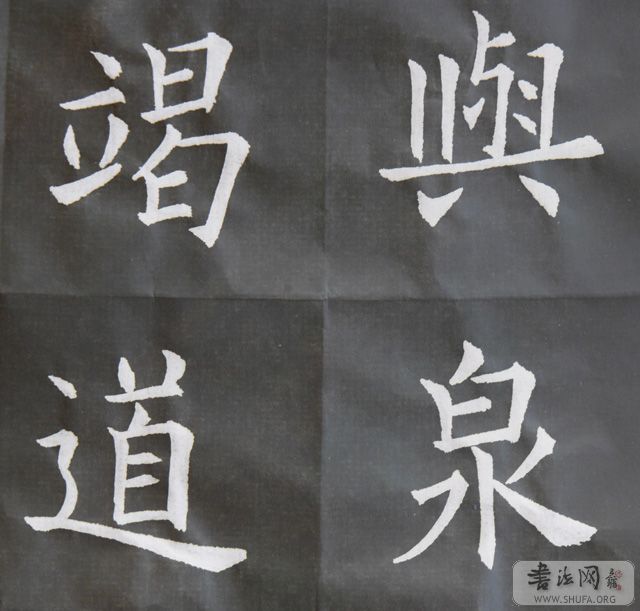 與泉
竭道
书法网
WWW.SHUFA.ORG